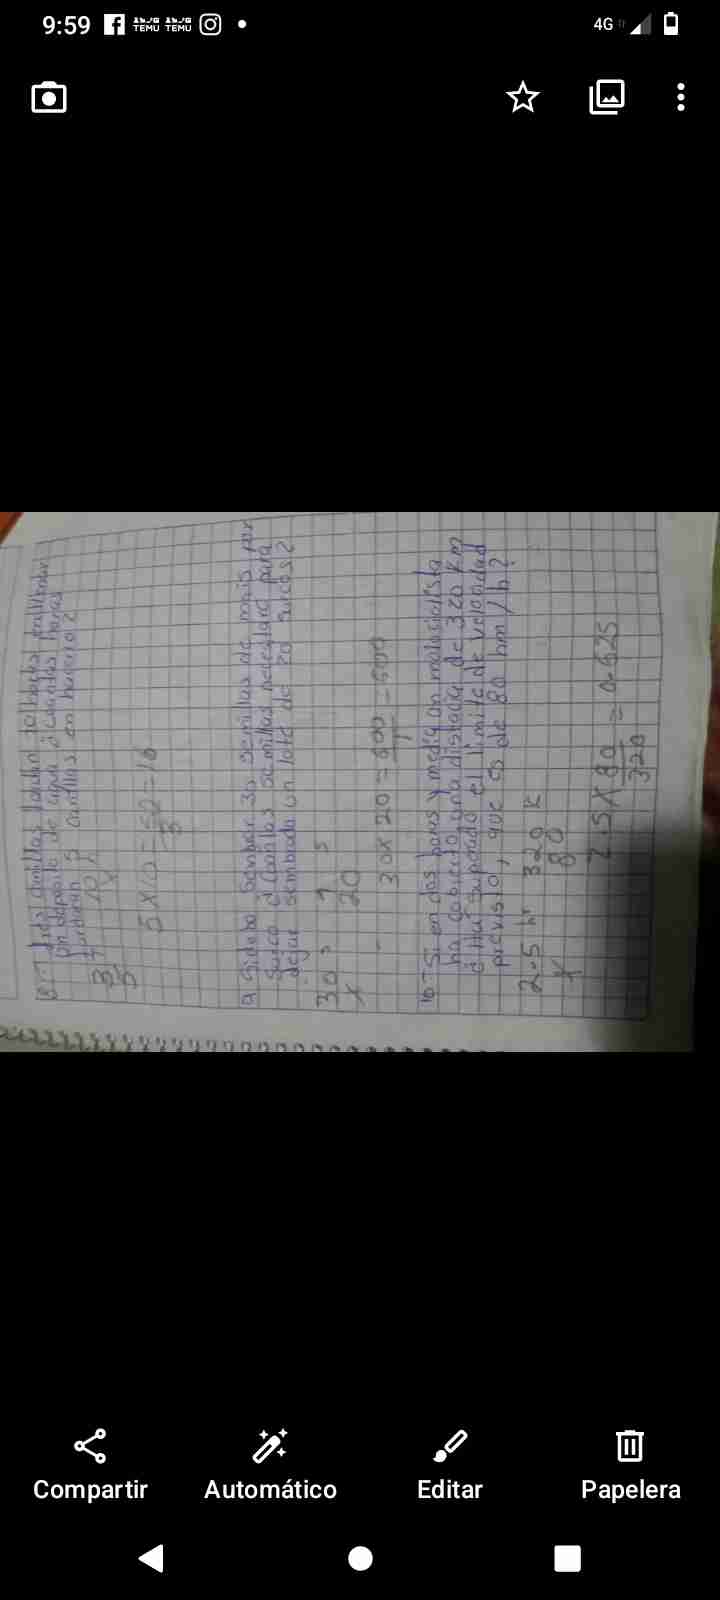 9:59
TEMU TEMU
4G
8.- Tres llaves tardan 10 horas
Un deposito de agua ¿ cuantas horas
tardaran 5 en hacerlo?
3 10 h
5 x
5 x 10 = 50 = 16
3
9. Si debo sembrar 30 semillas de mais por
surco ¿ cuantas semillas necesitare para
dejar sembrado un lote de 20 surcos?
30 s 1 s
x 20
30 x 20 = 600 = 600
1
10.- Si en dos horas y media un motosiclista
ha cobierto una distacia de 320 km
¿ Ha superado el limite de velocidad
previsto, que es de 80 km / h?
2.5 hr 320 K
x 80
2.5 x 80 = 0.625
320
Compartir
Automático
Editar
Papelera